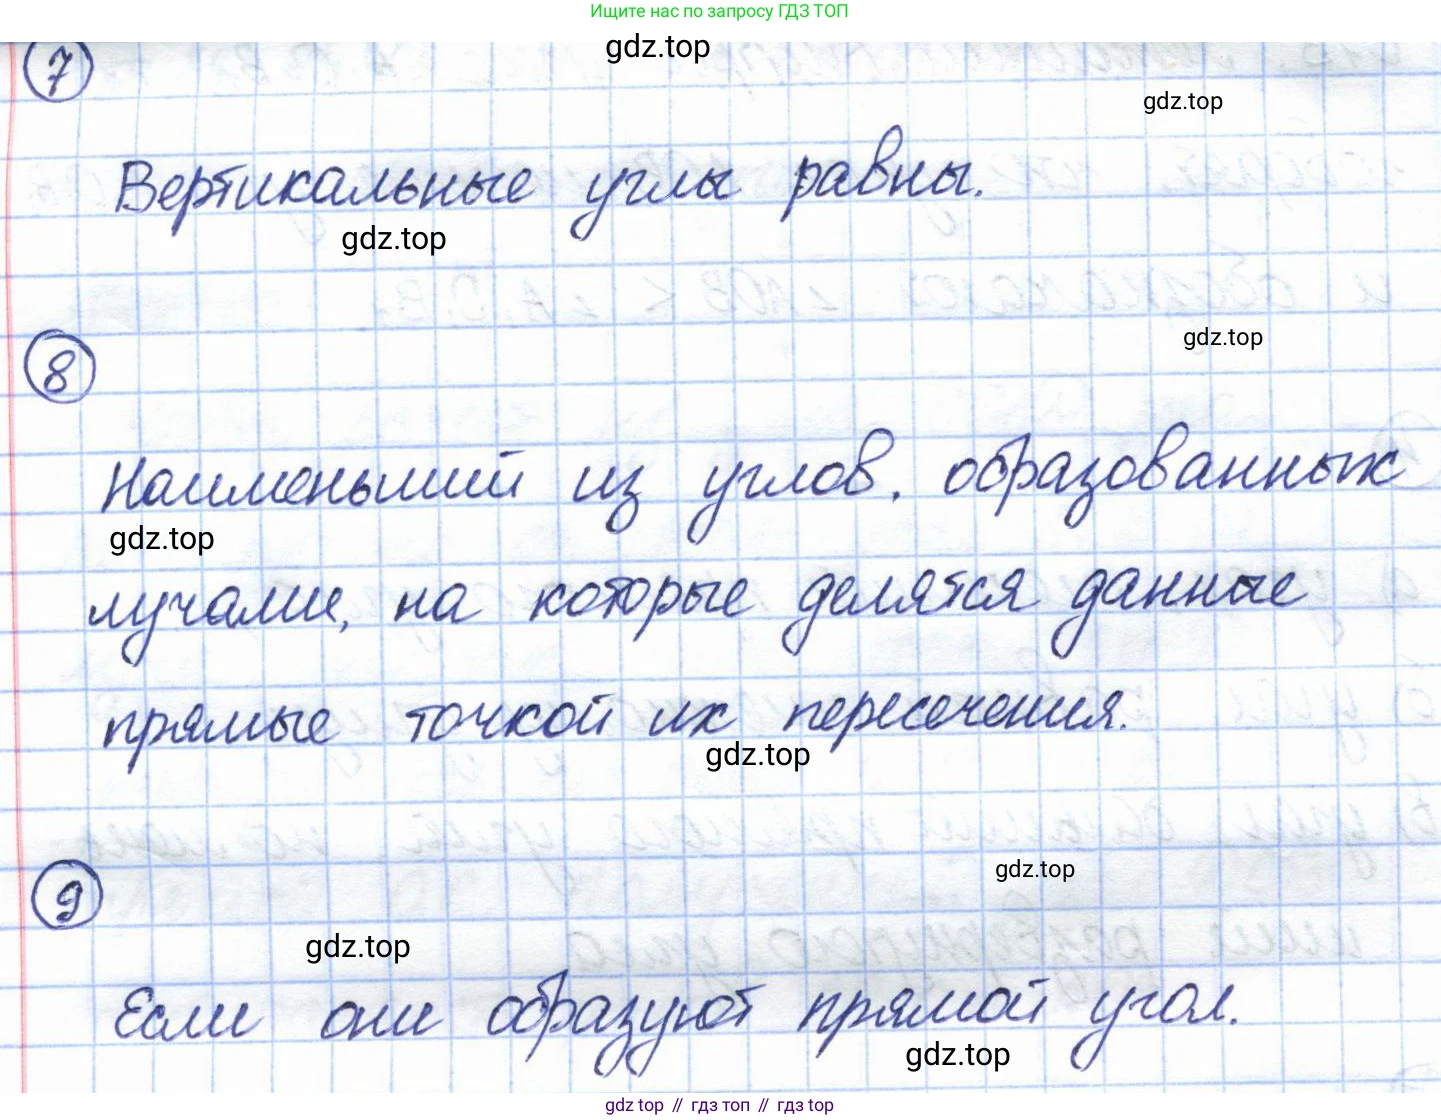 Ищите нас по запросу ГДЗ ТОП
gdz.top
7
gdz.top
Вертикальные углы равны.
gdz.top
gdz.top
8
Наименьший из углов, образованных
gdz.top
лучами, на которые делятся данные
прямые точкой их пересечения.
gdz.top
gdz.top
9
gdz.top
Если они образуют прямой угол.
gdz.top
gdz top // гдз топ // гдз top